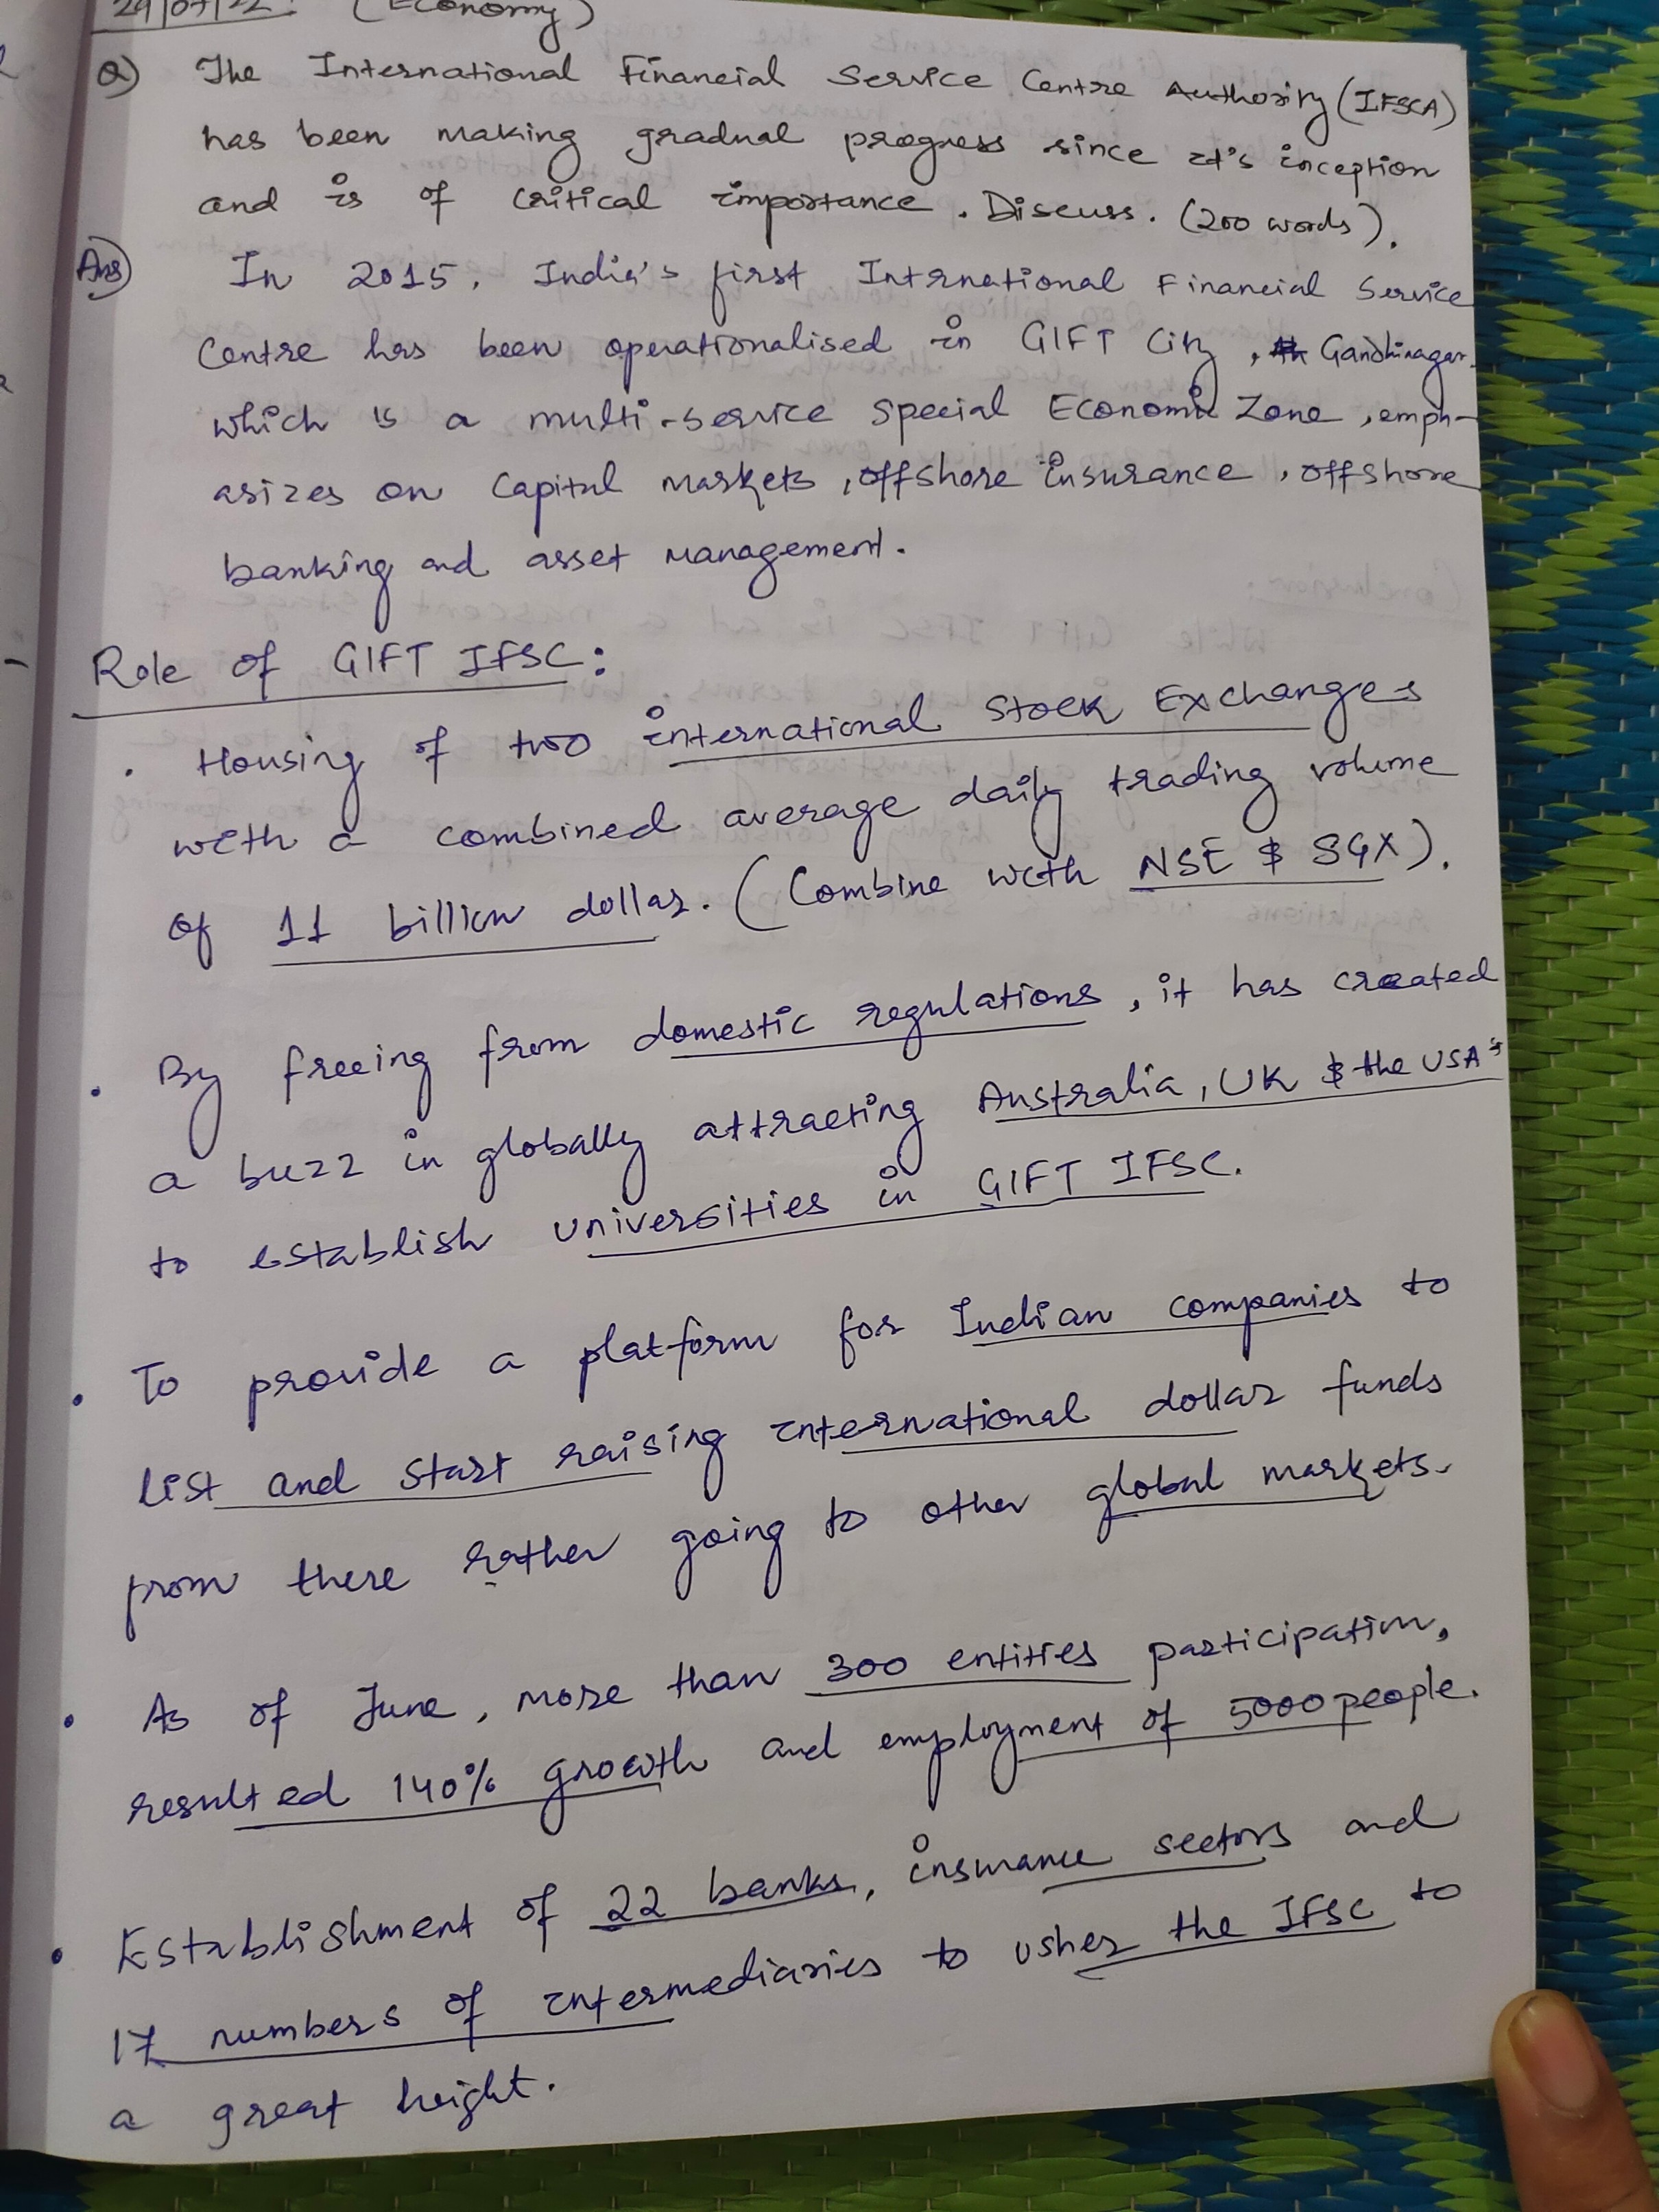 29/07/22. (Economy)
Q) The International Financial Service Centre Authority (IFSCA)
has been making gradual progress since it's inception
and is of critical importance. Discuss. (200 words).
Ans) In 2015, India's first International Financial Service
Centre has been operationalised in GIFT City, Gandhinagar.
which is a multi-service special Economic Zone, emph-
asizes on Capital markets, offshore insurance, offshore
banking and asset management.
Role of GIFT IFSC:
• Housing of two international Stock Exchanges
with a combined average daily trading volume
of 11 billion dollar. (Combine with NSE & SGX).
• By freeing from domestic regulations, it has created
a buzz in globally attracting Australia, UK & the USA's
to establish universities in GIFT IFSC.
• To provide a platform for Indian companies to
list and start raising international dollar funds
from there rather going to other global markets.
• As of June, more than 300 entities participation,
resulted 140% growth and employment of 5000 people.
• Establishment of 22 banks, insurance sectors and
17 numbers of intermediaries to usher the IFSC to
a great height.